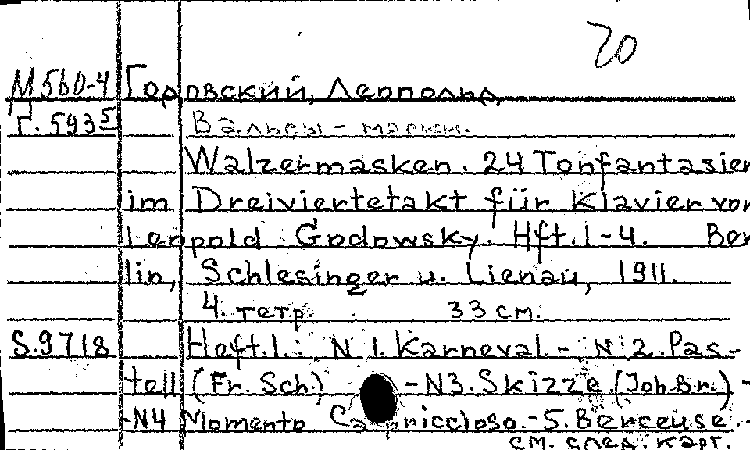 20
М560-4 Годовский, Леопольд,
Г.5935 Вальсы-маски.
Walzermasken. 24 Tonfantasien
im Dreiviertetakt für Klavier von
Leopold Godowsky. Hft.1-4. Ber
lin, Schlesinger u. Lienau, 1911.
4. тетр. 33 см.
S.9718 Heft.1.: N 1. Karneval - N 2. Pas-
tell (Fr. Sch.) -N3. Skizze (Joh.Br.) -
-N4 Momento Capriccioso. -5. Berceuse.-
см. след. карт.